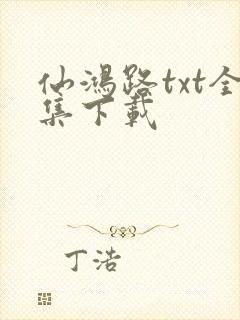 仙鴻路txt全
集下載
丁浩